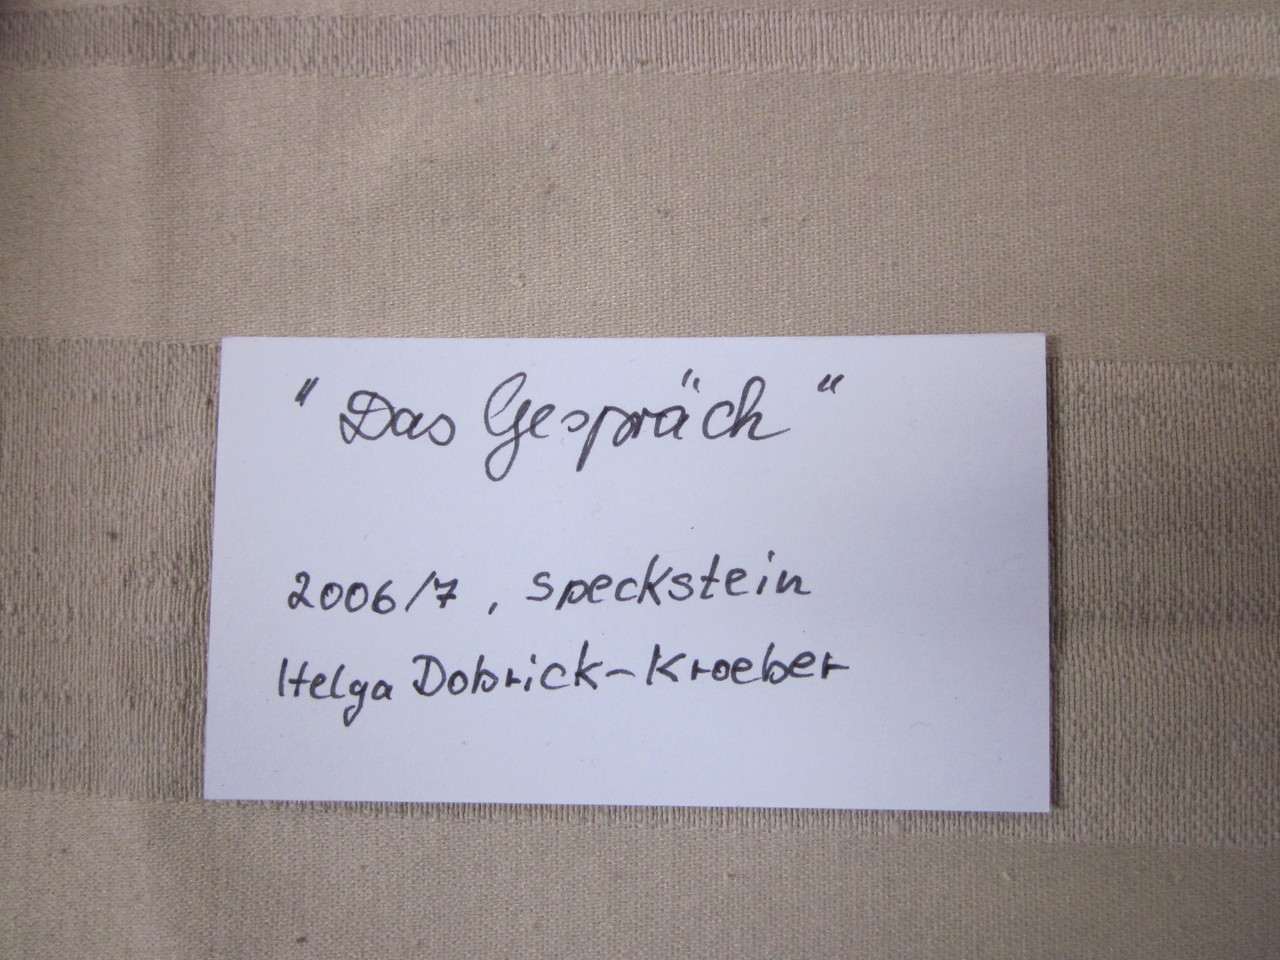 "Das Gespräch"
2006/7, Speckstein
Helga Dobrick-Kroeber